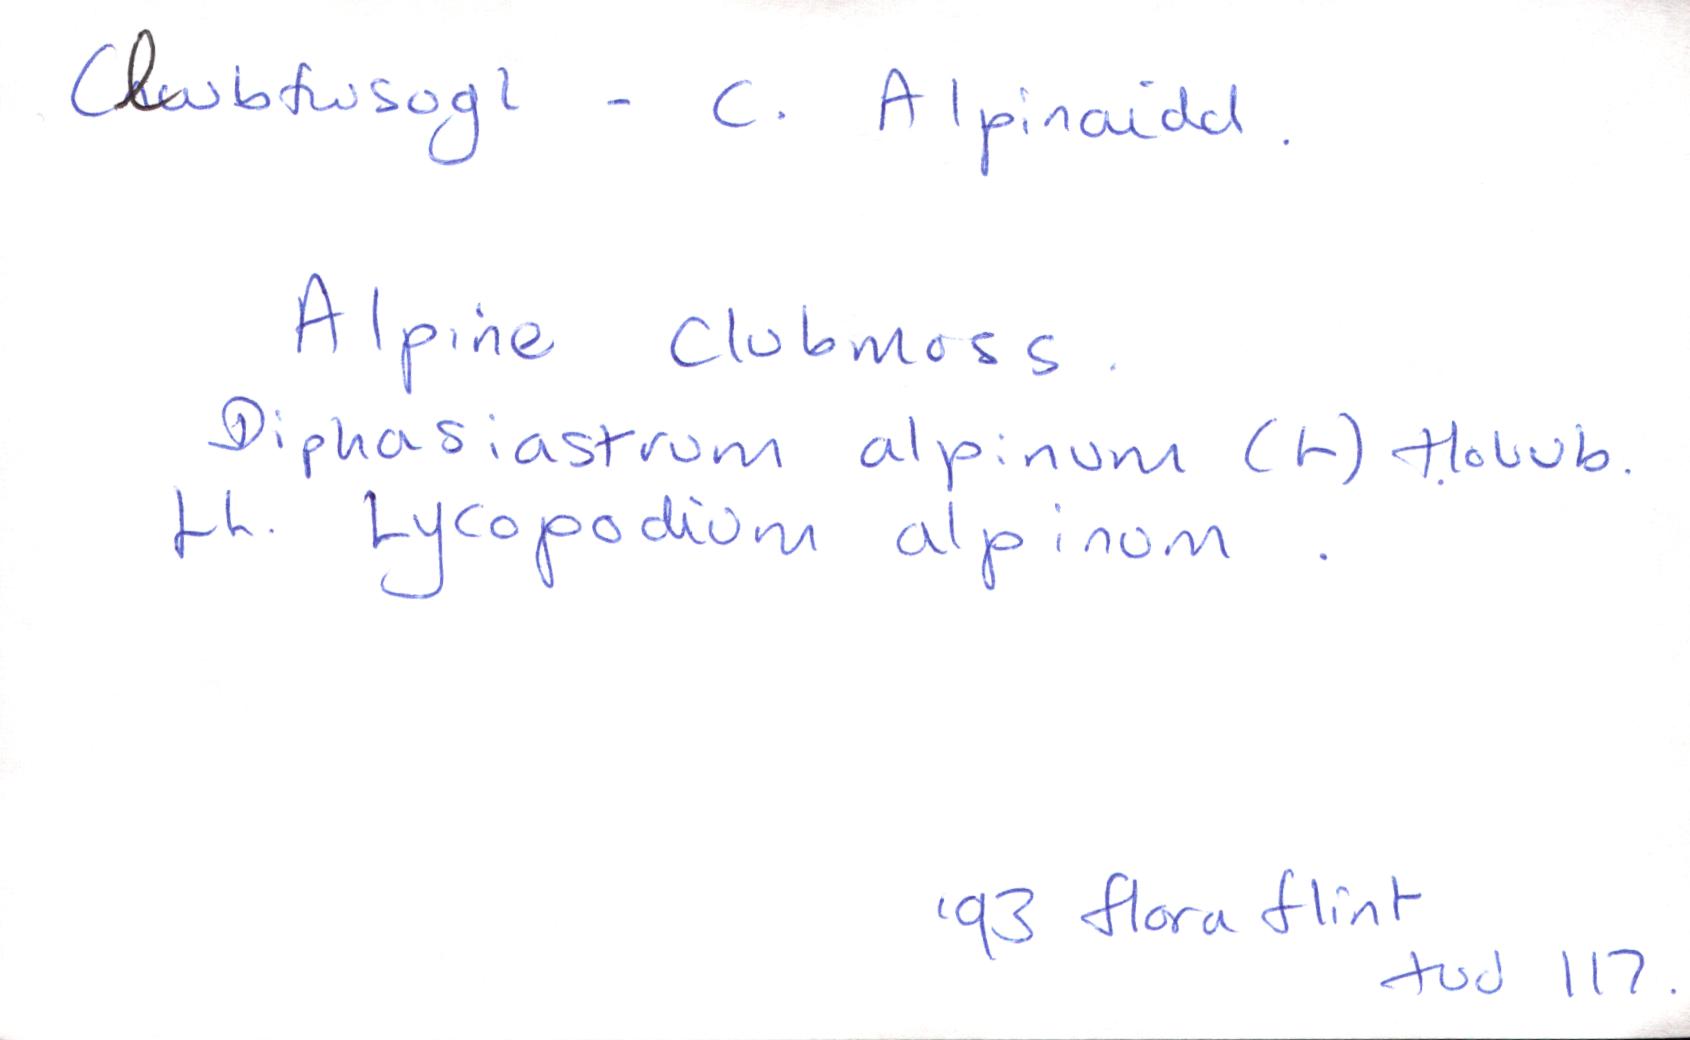 Clwbfwsogl - C. Alpinaidd.
Alpine Clubmoss.
Diphasiastrum alpinum (L) Holub.
Lh. Lycopodium alpinum.
'93 flora flint
tud 117.